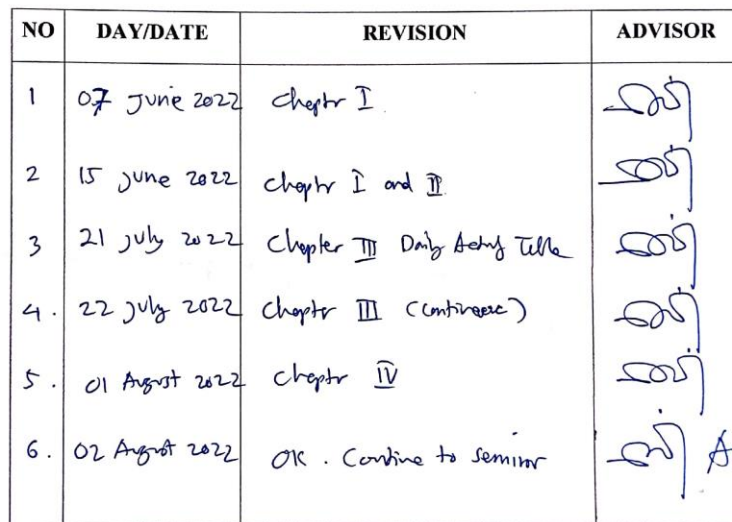 NO DAY/DATE REVISION ADVISOR
1 07 June 2022 Chaptr I
2 15 June 2022 Chaptr I and II
3 21 July 2022 Chapter III Daily
4. 22 July 2022 Chaptr III
5. 01 August 2022 Chaptr IV
6. 02 August 2022 OK. Continue to seminar